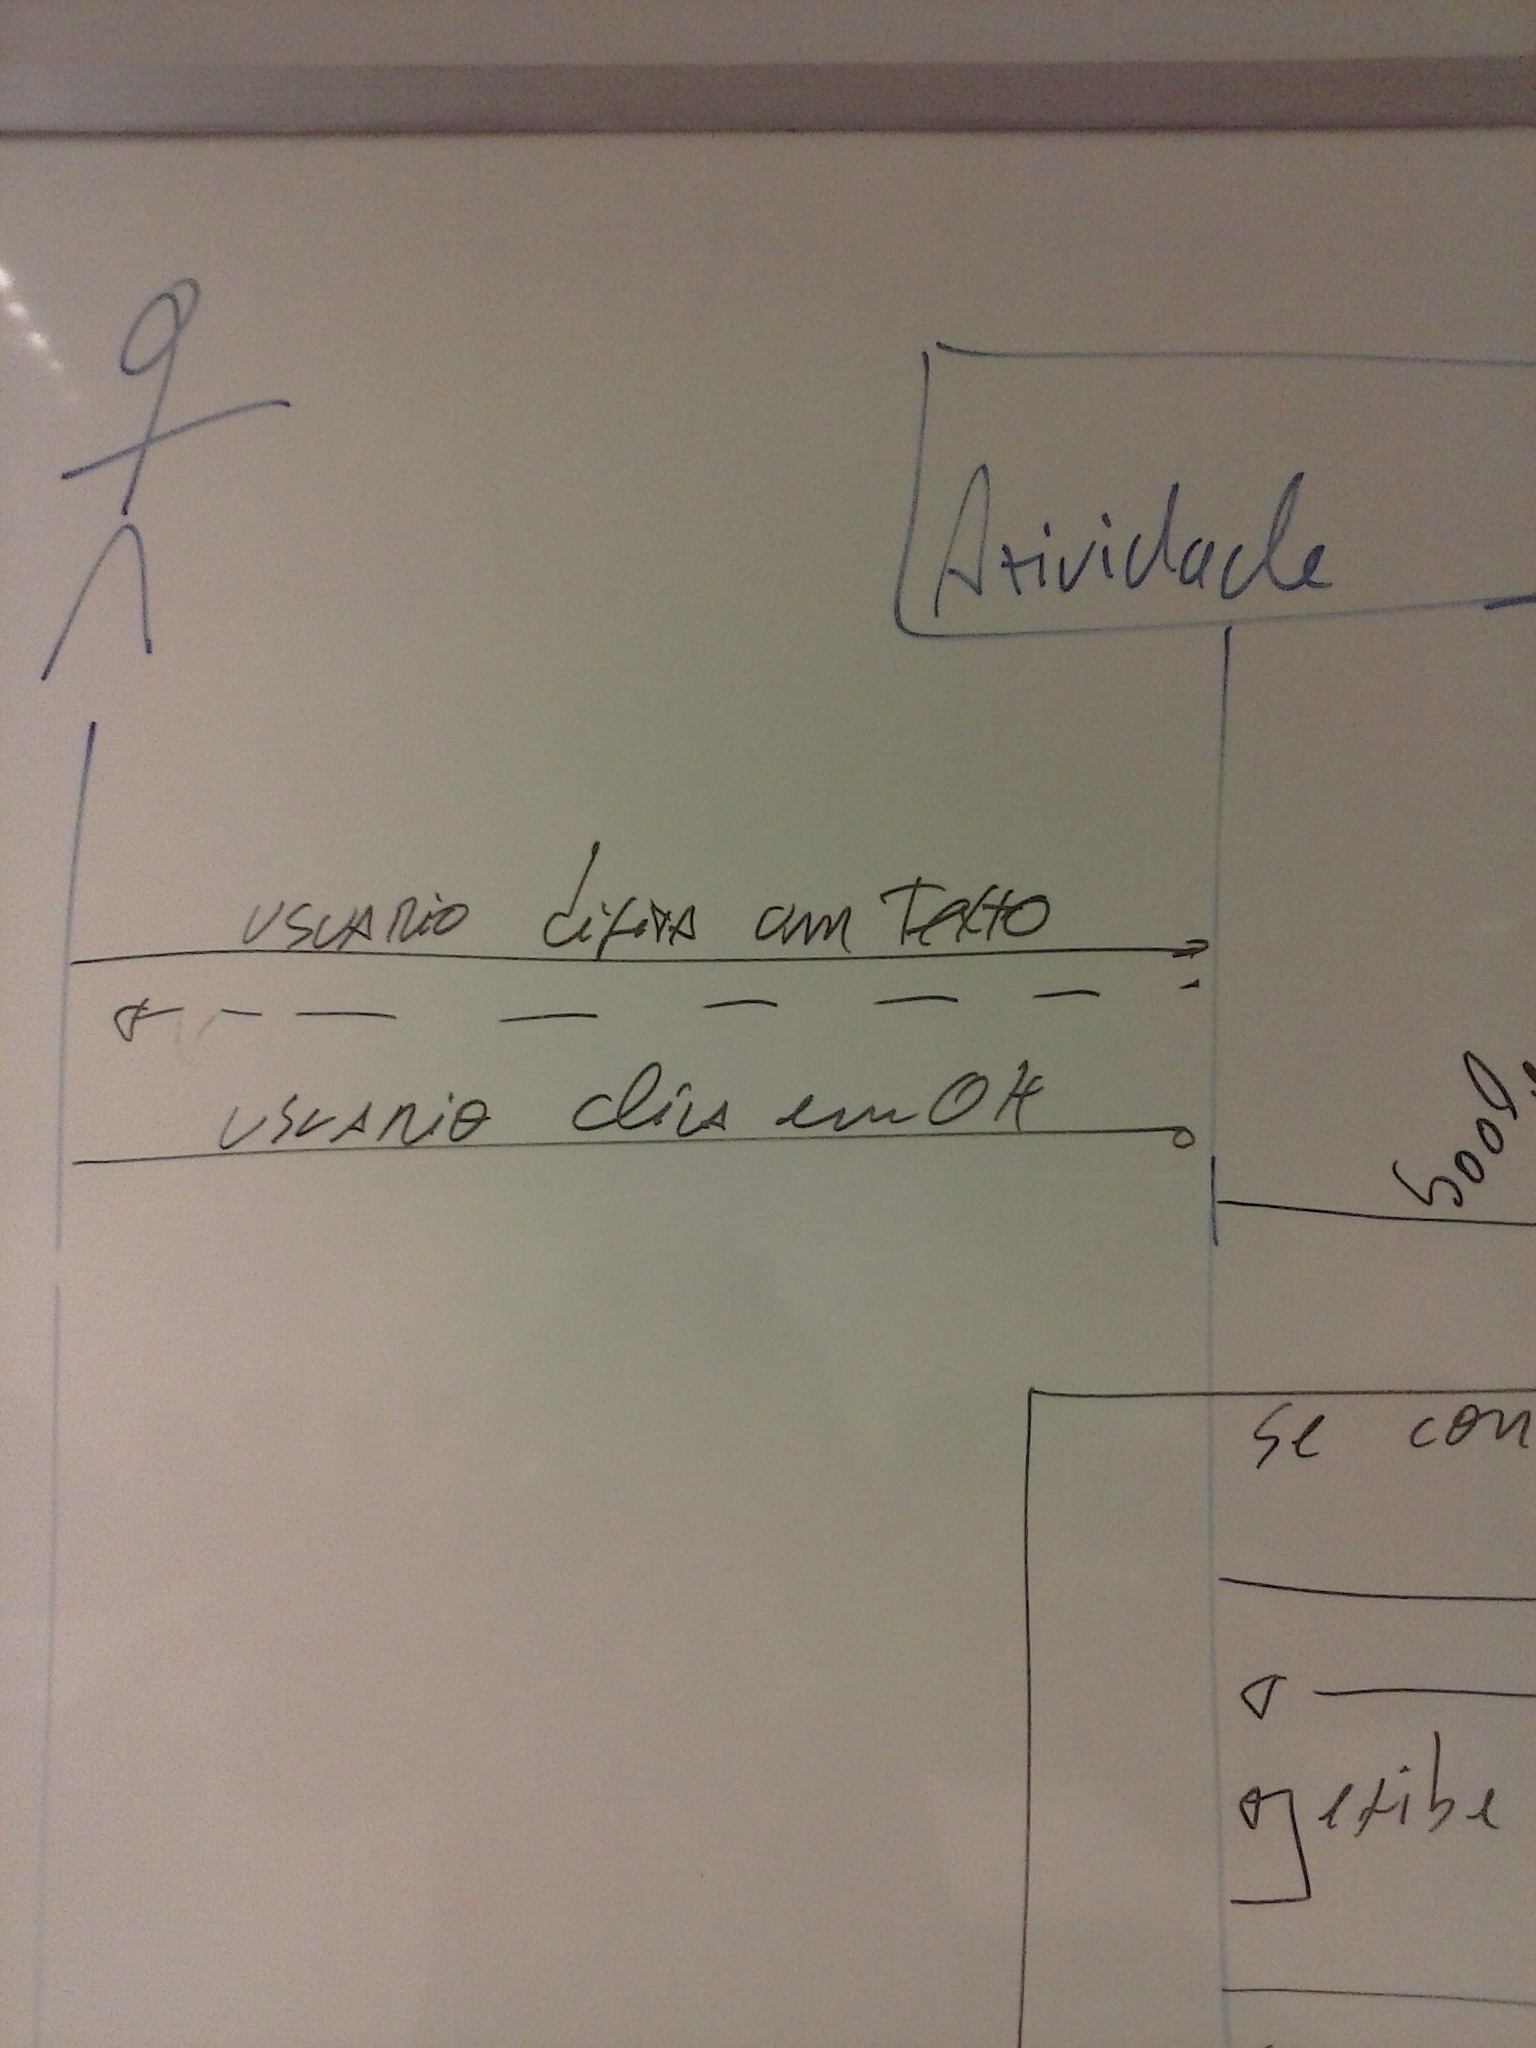 Atividade
usuario digita um Texto
usuario clica em OK
bool
se con
exibe